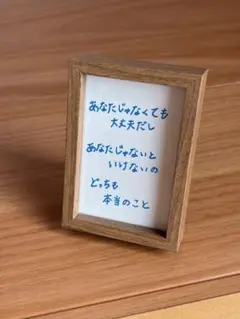 あなたじゃなくても
大丈夫だし
あなたじゃないと
いけないの
どっちも
本当のこと